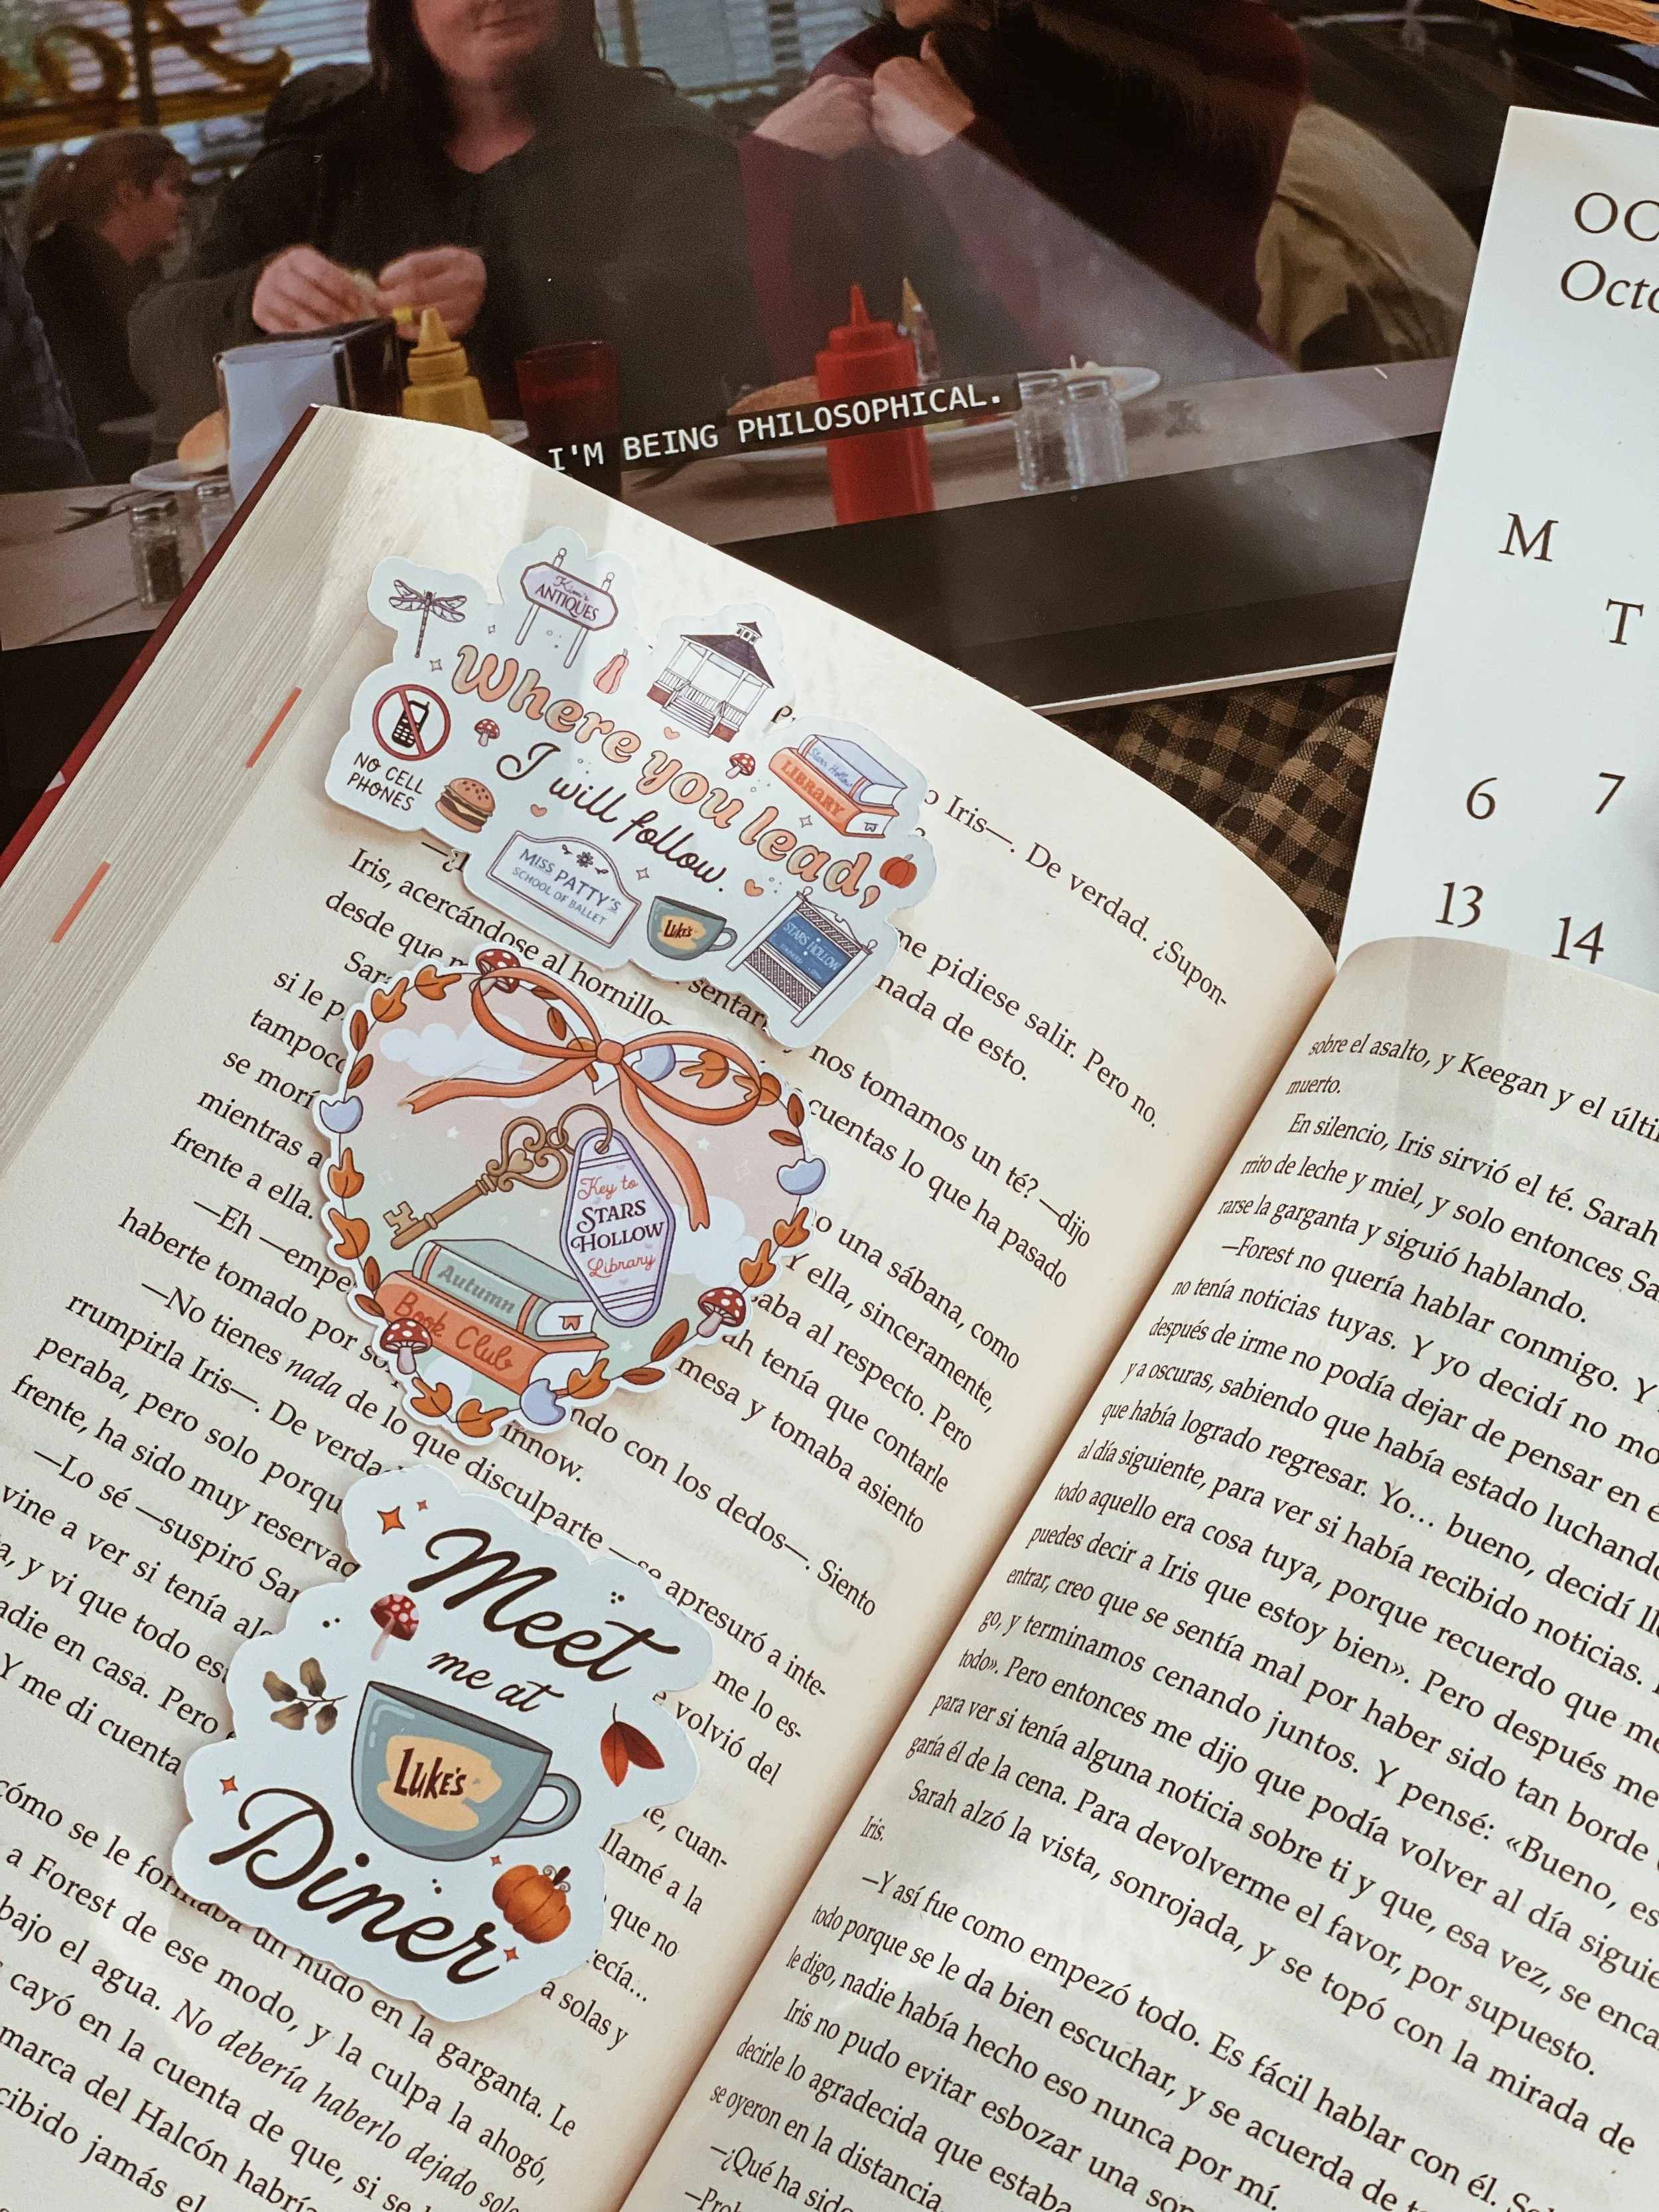 I'M BEING PHILOSOPHICAL.
M
T
6 7
13 14
Kim's
ANTIQUES
Where you lead,
I will follow.
NO CELL
PHONES
Stars Hollow
LIBRARY
MISS PATTY'S
SCHOOL OF BALLET
LUKE'S
STARS HOLLOW
Key to
STARS
HOLLOW
Library
Autumn
Book Club
Meet
me at
LUKE'S
Diner
Iris—. De verdad. ¿Supon-
me pidiese salir. Pero no.
Iris, acercándose al hornillo
nada de esto.
desde que
sentar
nos tomamos un té? —dijo
si le
cuentas lo que ha pasado
tampoco
una sábana, como
se
Y ella, sinceramente,
mientras a
al respecto. Pero
frente a ella.
tenía que contarle
—Eh
mesa y tomaba asiento
haberte tomado por
ndo con los dedos—. Siento
—No tienes nada de lo que disculparte —se apresuró a inte-
rrumpirla Iris—. De verda
me lo es-
peraba, pero solo porqu
volvió del
frente, ha sido muy reservad
—Lo sé —suspiró Sar
cuan-
vine a ver si tenía
llamé a la
y vi que todo es
que no
en casa. Pero
Y me di cuenta
a solas y
cómo se le formaba un nudo en la garganta. Le
a Forest de ese modo, y la culpa la ahogó,
bajo el agua. No debería haberlo dejado solo
cayó en la cuenta de que, si se
marca del Halcón habría
cibido jamás el
sobre el asalto, y Keegan y el últi
muerto.
En silencio, Iris sirvió el té. Sarah
rrito de leche y miel, y solo entonces Sa
rarse la garganta y siguió hablando.
—Forest no quería hablar conmigo. Y
no tenía noticias tuyas. Y yo decidí no mo
después de irme no podía dejar de pensar en é
y a oscuras, sabiendo que había estado luchand
que había logrado regresar. Yo… bueno, decidí ll
al día siguiente, para ver si había recibido noticias.
todo aquello era cosa tuya, porque recuerdo que me
puedes decir a Iris que estoy bien». Pero después me
entrar, creo que se sentía mal por haber sido tan borde
go, y terminamos cenando juntos. Y pensé: «Bueno, es
todo». Pero entonces me dijo que podía volver al día siguie
para ver si tenía alguna noticia sobre ti y que, esa vez, se enca
garía él de la cena. Para devolverme el favor, por supuesto.
Sarah alzó la vista, sonrojada, y se topó con la mirada de
Iris.
—Y así fue como empezó todo. Es fácil hablar con él. So
todo porque se le da bien escuchar, y se acuerda de
le digo, nadie había hecho eso nunca por mí.
Iris no pudo evitar esbozar una son
decirle lo agradecida que estaba
se oyeron en la distancia.
—¿Qué ha sido